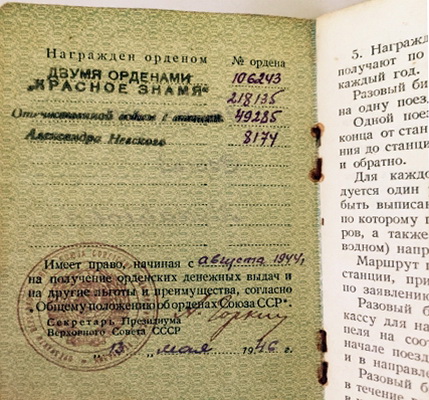 Награжден орденом
№ ордена
ДВУМЯ ОРДЕНАМИ
106243
"КРАСНОЕ ЗНАМЯ"
218135
Отечественной войны I степени
49285
Александра Невского
8174
Имеет право, начиная с августа 1944,
на получение орденских денежных выдач и
на другие льготы и преимущества, согласно
"Общему положению об орденах Союза ССР".
Секретарь Президиума
Верховного Совета СССР
Горкин
"13" мая 1946 г.
5. Награжд
получают по
каждый год.
Разовый би
на одну поез
Одной поез
конца от стан
ния до станци
и обратно.
Для каждо
дуется один
быть выписан
по которому п
ров, а также
водном) напр
Маршрут п
станции, при
по заявлению
Разовый б
кассу для на
пеля на соот
начале поезд
и в направле
Разовый б
в течение